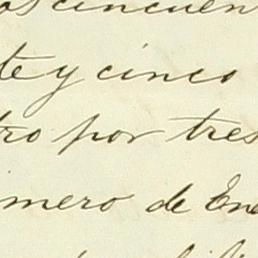 os cincuen
te y cinco
tro por tres
imero de Ene